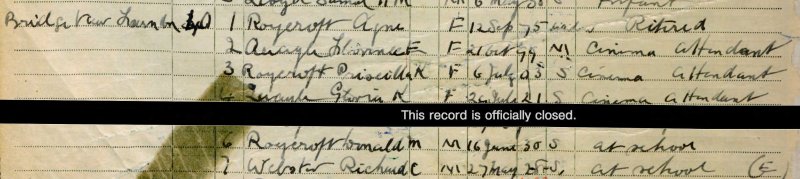 M 6 May 30 S Infant
Bridge View 1 Roycroft Agne F 12 Sep 75 Retired
2 Florence E F 21 Oct 99 M Cinema Attendant
3 Roycroft Priscilla K F 6 July 05 S Cinema Attendant
4 Gloria K F 21 S Cinema Attendant
This record is officially closed.
6 Roycroft Donald M M 16 June 30 S at school
7 Webster Richard C M 27 May 28 S. at school (E)